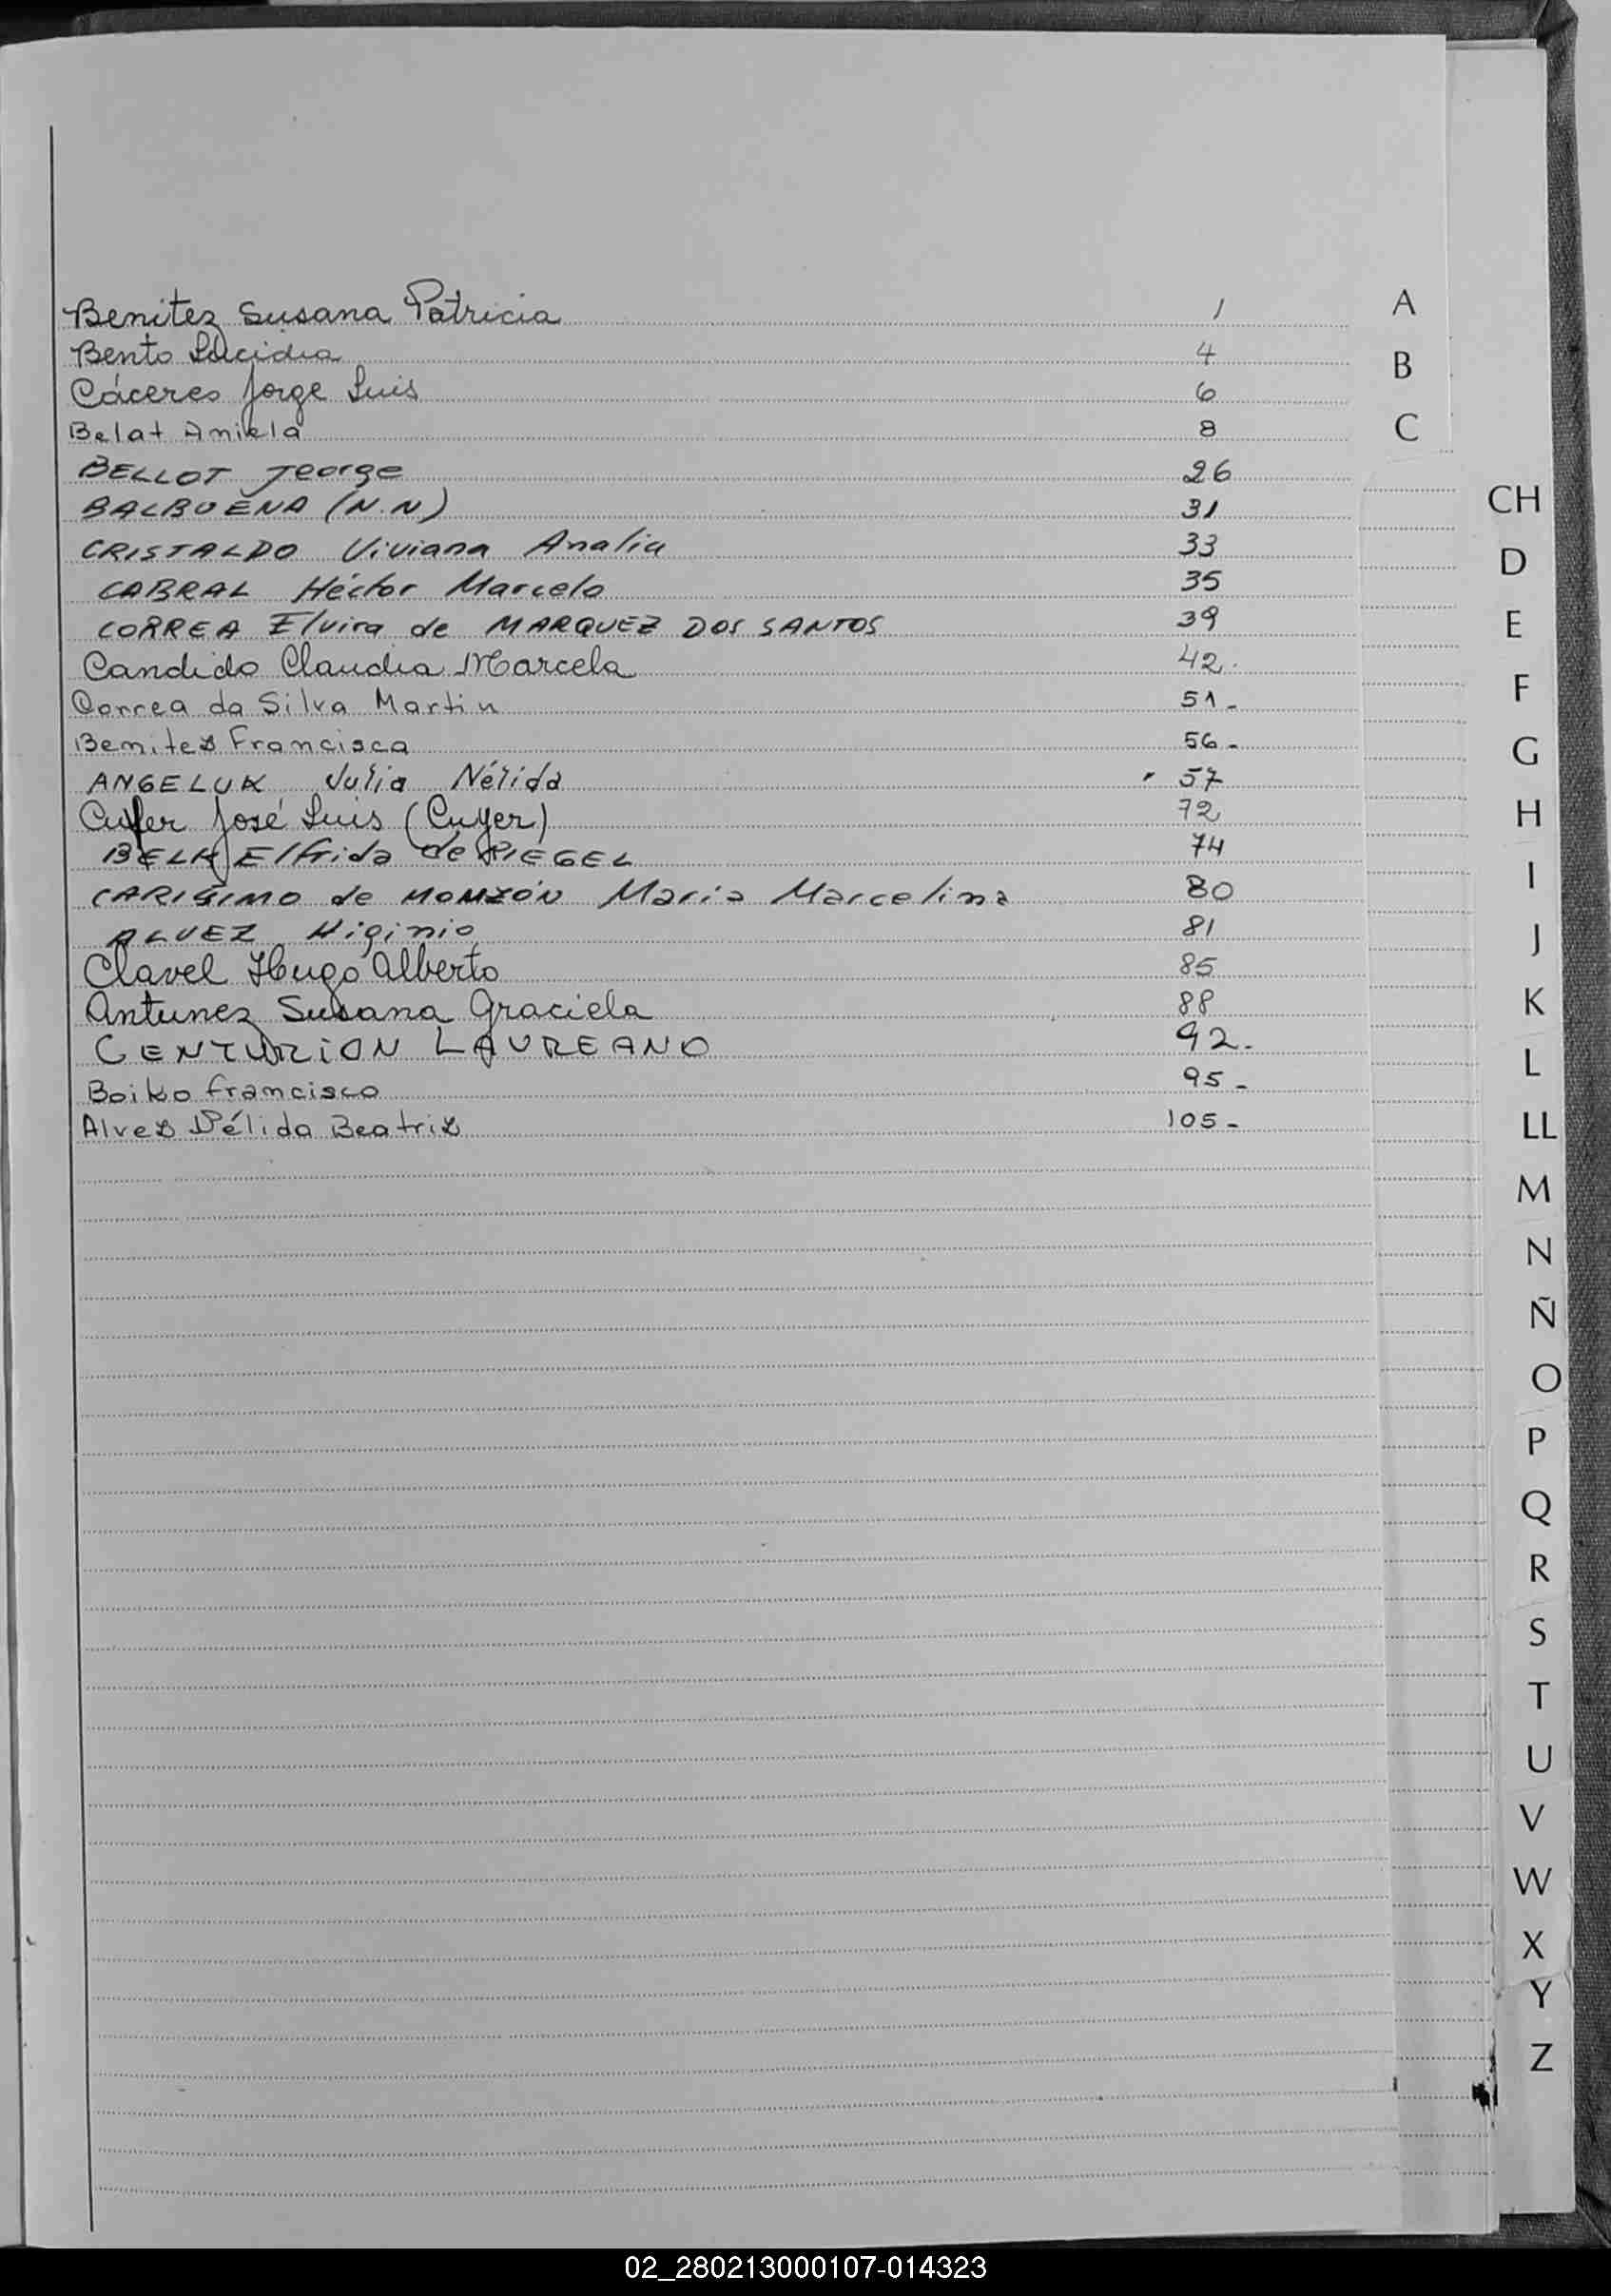 Benitez Susana Patricia 1
Bento Lucidia 4
Cáceres Jorge Luis 6
Belat Aniela 8
BELLOT Jeorge 26
BALBUENA (N.N) 31
CRISTALDO Viviana Analia 33
CABRAL Héctor Marcelo 35
CORREA Elvira de MARQUEZ DOS SANTOS 39
Candido Claudia Marcela 42.
Correa da Silva Martin 51-
Benitez Francisca 56-
ANGELUK Julia Nélida 57
José Luis (Cuyer) 72
BELK Elfrida de RIEGEL 74
CARISIMO de MONZÓN Maria Marcelina 80
ALVEZ Higinio 81
Clavel Hugo Alberto 85
Antunez Susana Graciela 88
CENTURION LAUREANO 92-
Boiko Francisco 95-
Alvez Nélida Beatriz 105-
A
B
C
CH
D
E
F
G
H
I
J
K
L
LL
M
N
Ñ
O
P
Q
R
S
T
U
V
W
X
Y
Z
02_280213000107-014323